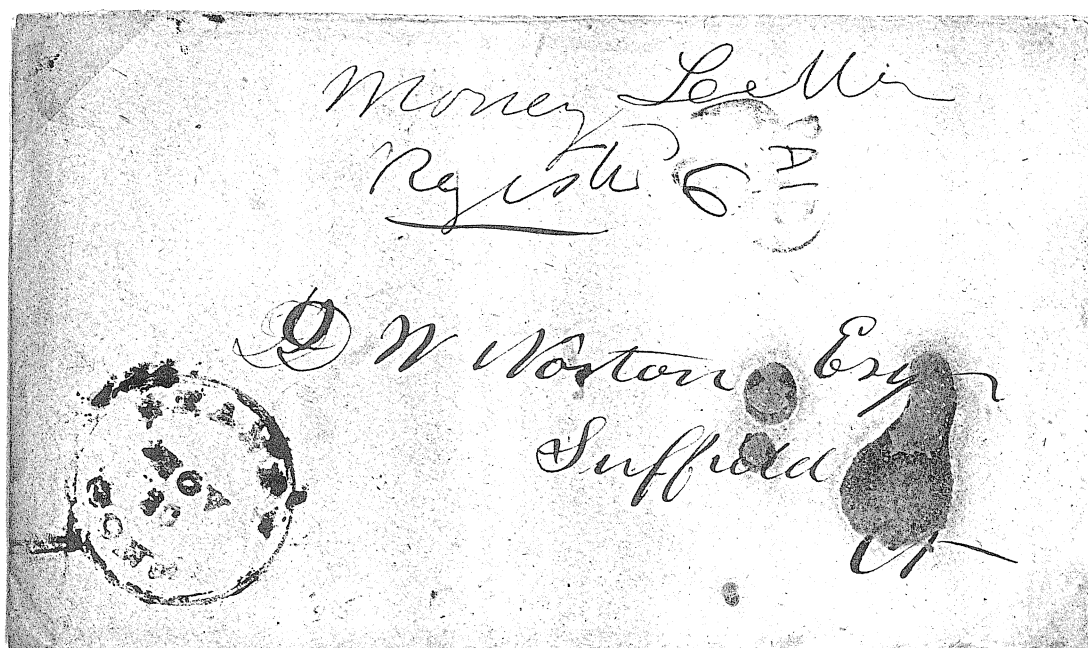 Money Letter
Register 6
PAID
D W Norton Esq
Suffield
Ct